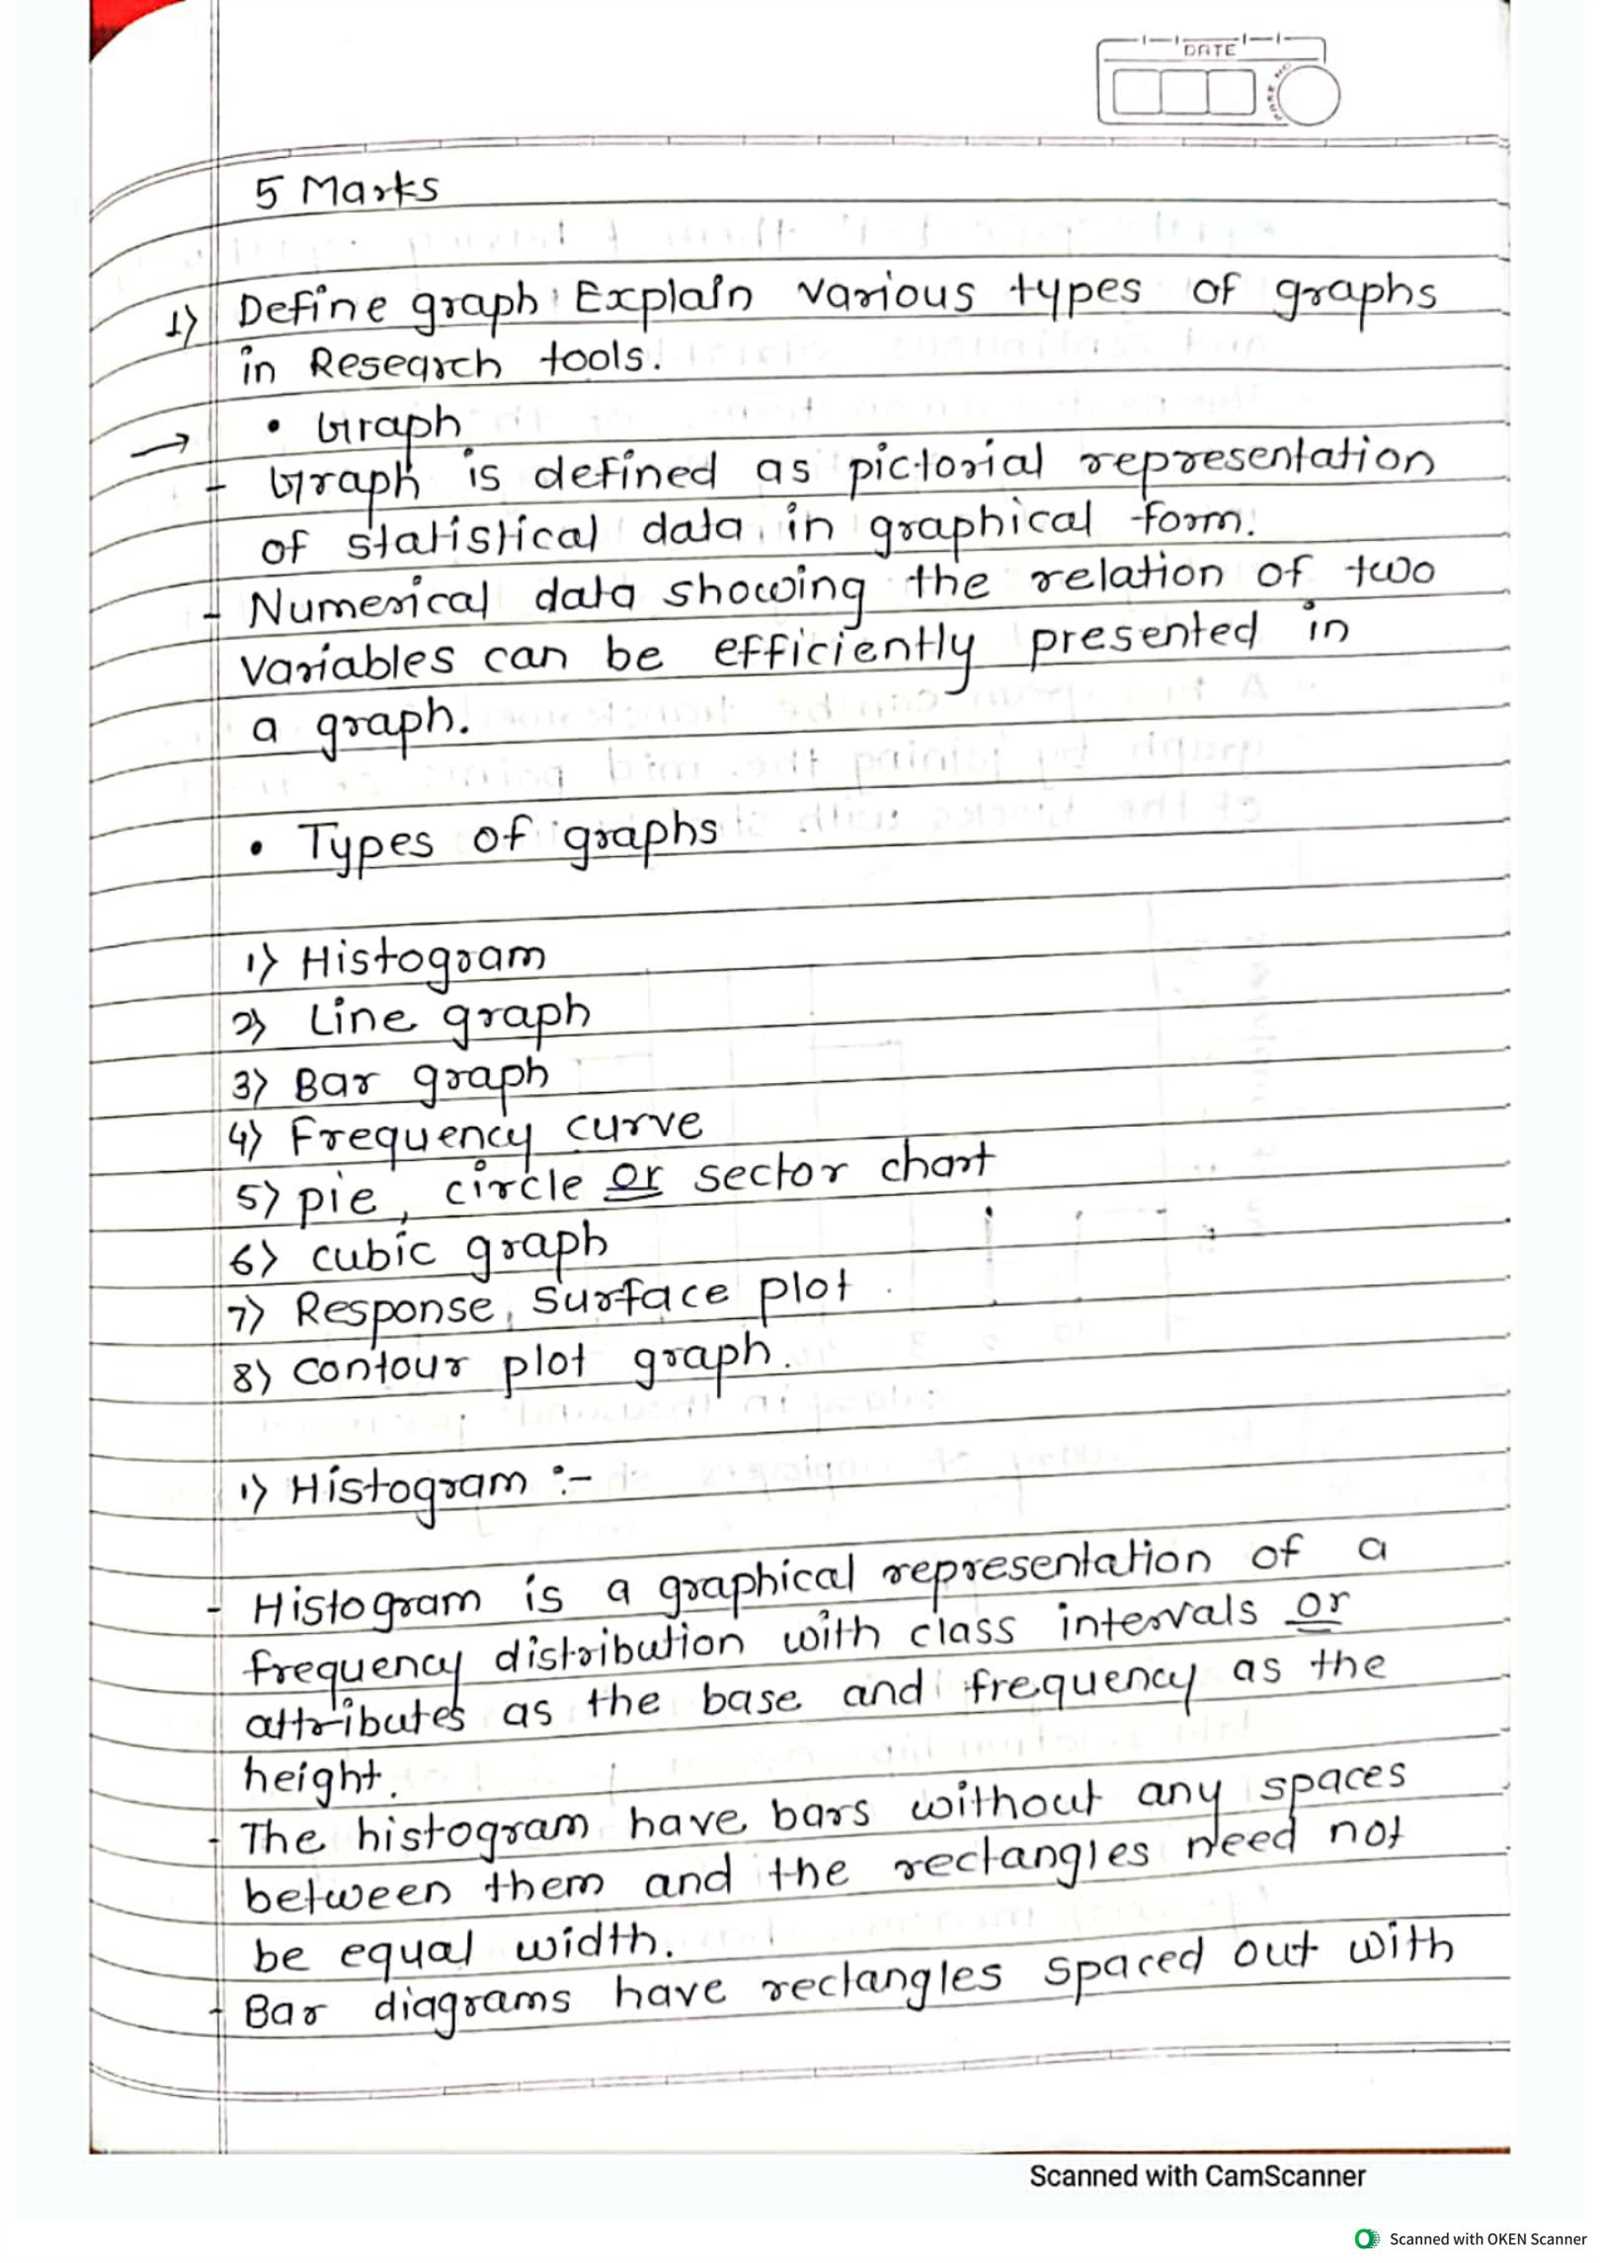 DATE
PAGE NO
5 Marks
1) Define graph. Explain various types of graphs
in Research tools.
→ • Graph
- Graph is defined as pictorial representation
of statistical data in graphical form.
- Numerical data showing the relation of two
variables can be efficiently presented in
a graph.
• Types of graphs
1) Histogram
2) Line graph
3) Bar graph
4) Frequency curve
5) pie, circle or sector chart
6) cubic graph
7) Response, surface plot
8) contour plot graph.
1) Histogram :-
- Histogram is a graphical representation of a
frequency distribution with class intervals or
attributes as the base and frequency as the
height.
- The histogram have bars without any spaces
between them and the rectangles need not
be equal width.
- Bar diagrams have rectangles spaced out with
Scanned with CamScanner
Scanned with OKEN Scanner